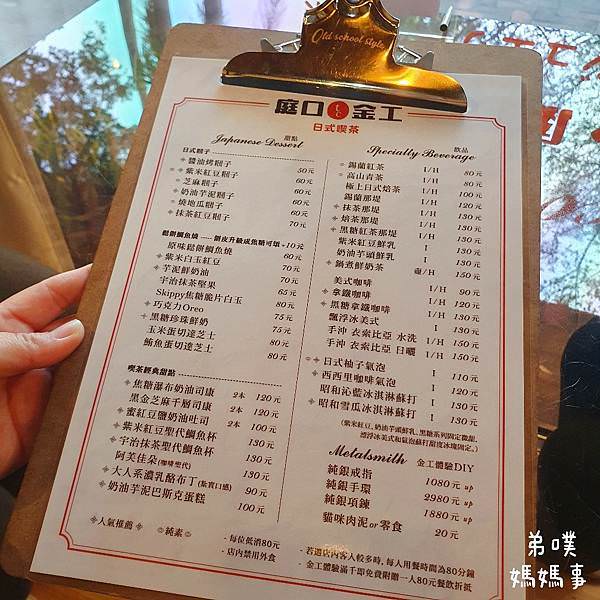 Old school style
庭口金工
日式喫茶
Japanese Dessert 甜點
日式糰子
醬油烤糰子 50元
紫米紅豆糰子 60元
芝麻糰子 60元
奶油芋泥糰子 60元
燒地瓜糰子 60元
抹茶紅豆糰子 70元
鬆餅鯛魚燒 —— 餅皮升級成焦糖可頌+10元
原味鬆餅鯛魚燒 60元
紫米白玉紅豆 70元
芋泥鮮奶油 70元
宇治抹茶堅果 65元
Skippy焦糖脆片白玉 80元
巧克力Oreo 75元
黑糖珍珠鮮奶 75元
玉米蛋切達芝士 80元
鮪魚蛋切達芝士 80元
喫茶經典甜點
焦糖瀑布奶油司康 2本 120元
黑金芝麻千層司康 2本 120元
蜜紅豆鹽奶油吐司 2本 100元
紫米紅豆聖代鯛魚杯 130元
宇治抹茶聖代鯛魚杯 130元
阿芙佳朵(咖啡聖代) 130元
大人系濃乳酪布丁(紮實口感) 90元
奶油芋泥巴斯克蛋糕 100元
人氣推薦 純素
Specialty Beverage 飲品
錫蘭紅茶 I/H 80元
高山青茶 I/H 80元
極上日式焙茶 I/H 100元
錫蘭那堤 I/H 120元
抹茶那堤 I/H 130元
焙茶那堤 I/H 130元
黑糖紅茶那堤 I/H 130元
紫米紅豆鮮乳 I 130元
奶油芋頭鮮乳 I 130元
鍋煮鮮奶茶 壺/H 150元
美式咖啡 I/H 90元
拿鐵咖啡 I/H 120元
黑糖拿鐵咖啡 I/H 130元
飄浮冰美式 I 130元
手沖 衣索比亞 水洗 I/H 150元
手沖 衣索比亞 日曬 I/H 150元
日式柚子氣泡 I 110元
西西里咖啡氣泡 I 120元
昭和沁藍冰淇淋蘇打 I 130元
昭和雪瓜冰淇淋蘇打 I 130元
(紫米紅豆、奶油芋頭鮮乳、黑糖系列固定微甜,
漂浮冰美式和氣泡蘇打甜度冰塊固定。)
Metalsmith 金工體驗DIY
純銀戒指 1080元 up
純銀手環 2980元 up
純銀項鍊 1880元 up
貓咪肉泥or零食 20元
・每位低消80元
・店內禁用外食
・若遇店內客人較多時, 每人用餐時間為80分鐘
・金工體驗滿千即免費附贈一人80元餐飲折抵
弟噗
媽媽事